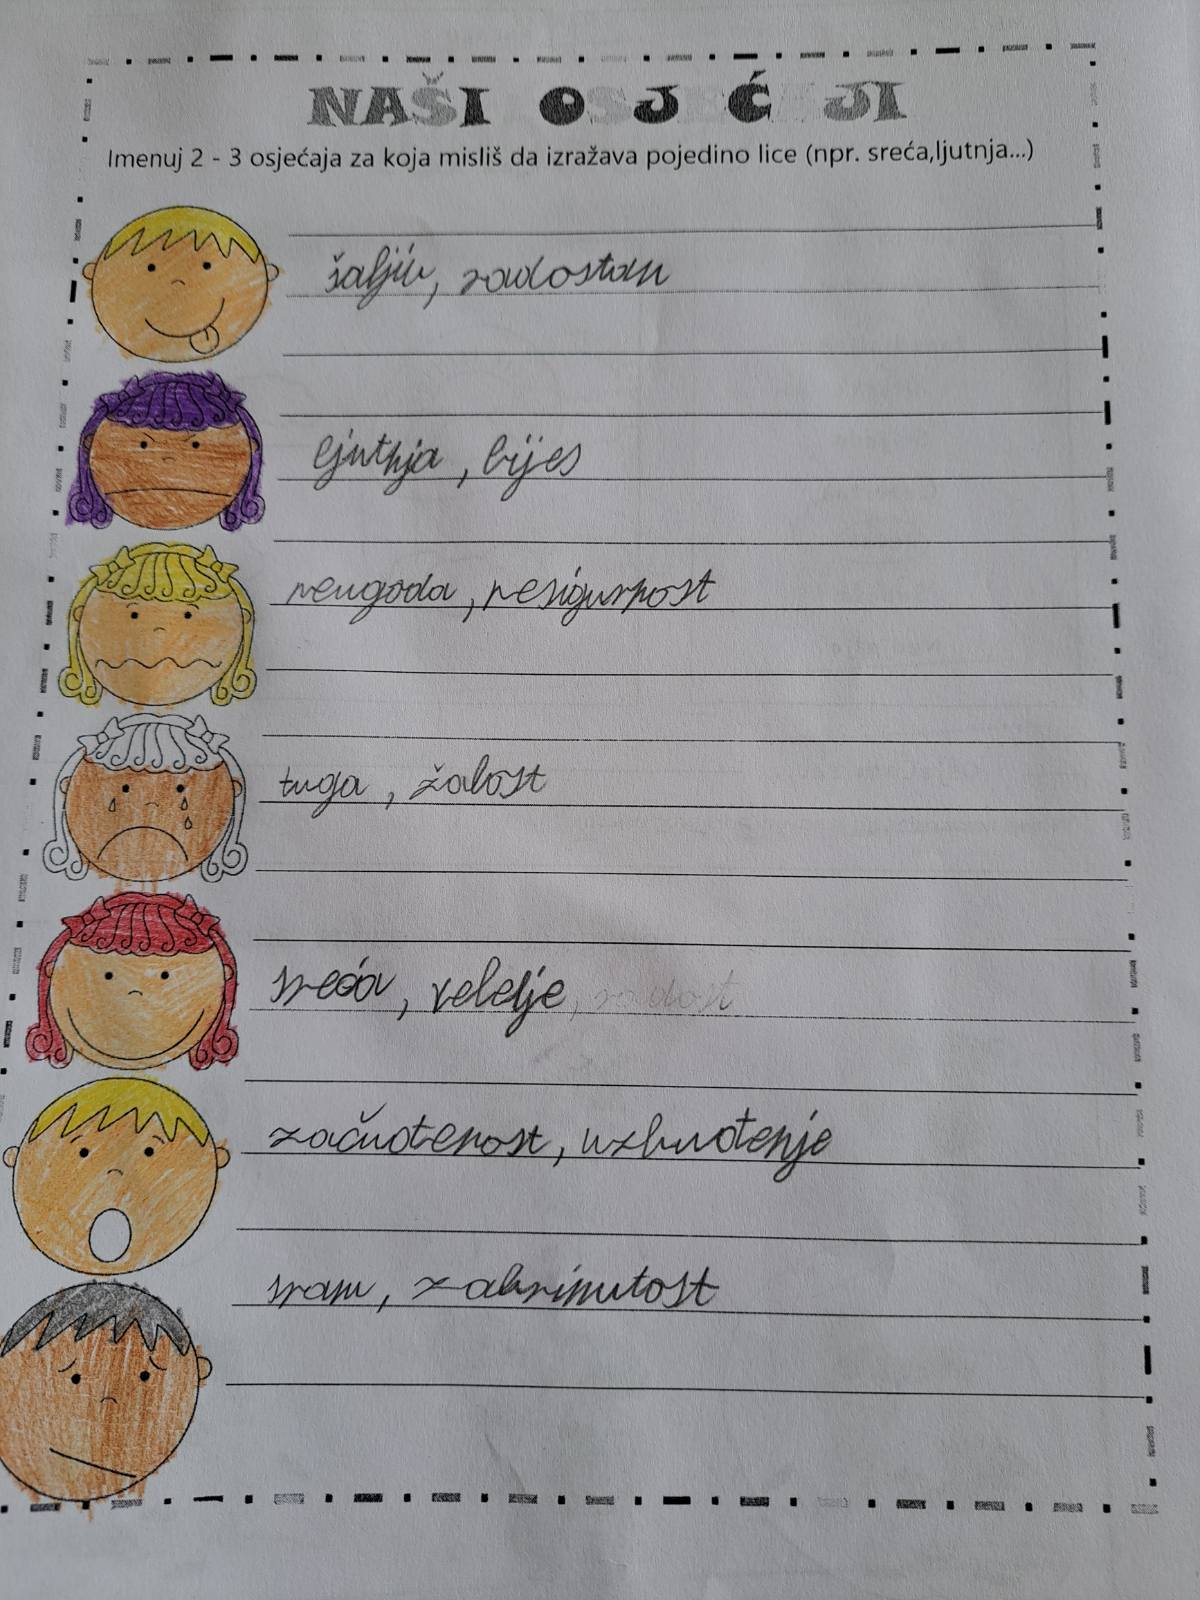 NAŠI OSJEĆAJI
Imenuj 2 - 3 osjećaja za koja misliš da izražava pojedino lice (npr. sreća,ljutnja...)
šaljiv, radostan
ljutnja, bijes
neugoda, nesigurnost
tuga, žalost
sreća, veselje, radost
začuđenost, uzbuđenje
sram, zabrinutost